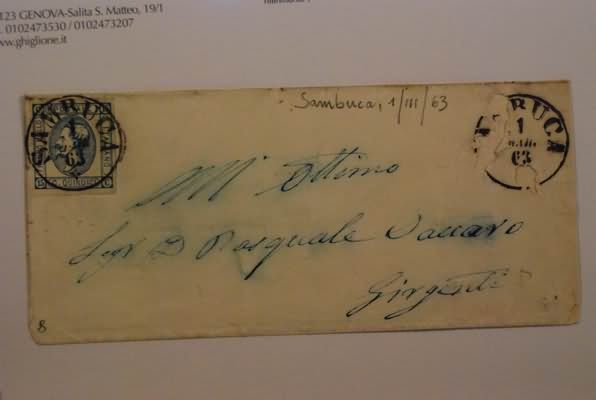 123 GENOVA-Salita S. Matteo, 19/1
. 0102473530 / 0102473207
ww.ghiglione.it
Sambuca, 1/III/63
SAMBUCA
1
63
C. QUINDICI C.
BUCA
1
MAR
63
All' Ottimo
Sigr D. Pasquale Vaccaro
Girgenti
8